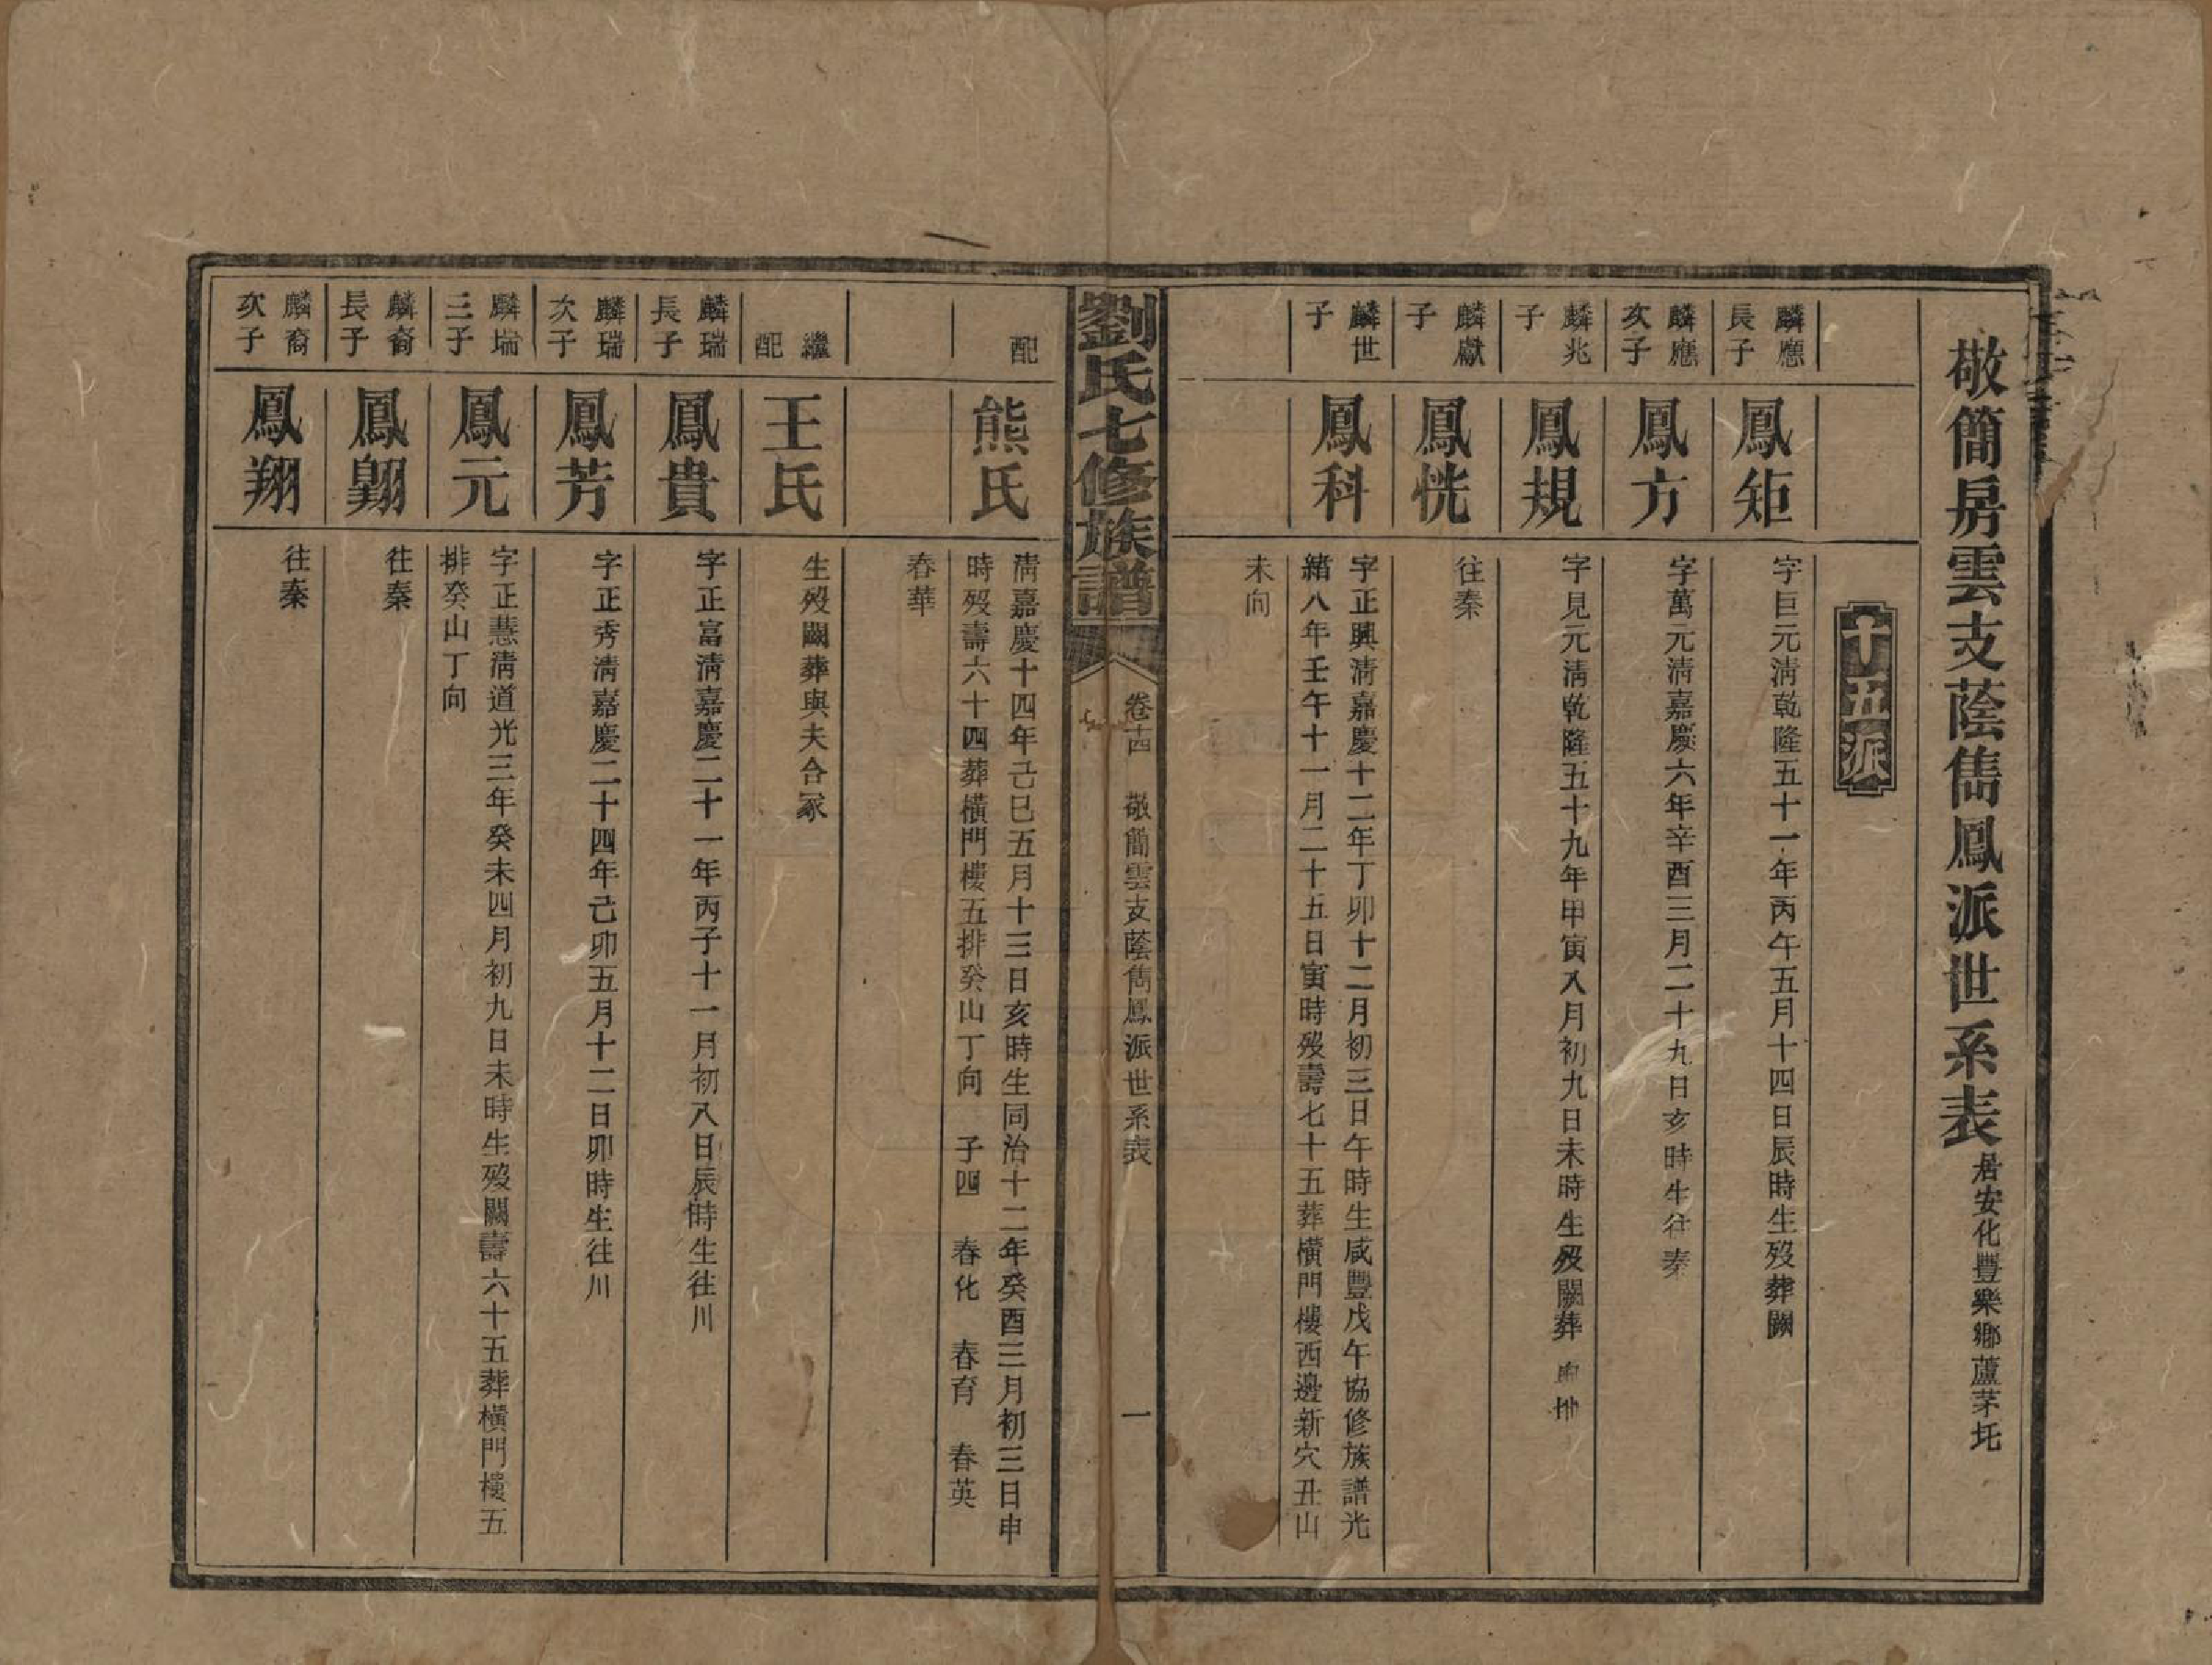 敬簡房雲支蔭儁鳳派世系表 居安化豐樂鄉蘆茅坵
十五派
麟應長子
鳳矩
字巨元清乾隆五十一年丙午五月十四日辰時生歿葬闕
麟應次子
鳳方
字萬元清嘉慶六年辛酉三月二十九日亥時生往秦
麟兆子
鳳規
字見元清乾隆五十九年甲寅八月初九日未時生歿闕葬
麟獻子
鳳恍
往秦
麟世子
鳳科
字正興清嘉慶十二年丁卯十二月初三日午時生咸豐戊午協修族譜光
緒八年壬午十一月二十五日寅時歿壽七十五葬橫門樓西邊新穴丑山
未向
劉氏七修族譜
卷十四
敬簡雲支蔭儁鳳派世系表
一
配
熊氏
清嘉慶十四年己巳五月十三日亥時生同治十二年癸酉三月初三日申
時歿壽六十四葬橫門樓五排癸山丁向 子四 春化 春育 春英
春華
繼配
王氏
生歿闕葬與夫合冢
麟瑞長子
鳳貴
字正富清嘉慶二十一年丙子十一月初八日辰時生往川
麟瑞次子
鳳芳
字正秀清嘉慶二十四年己卯五月十二日卯時生往川
麟瑞三子
鳳元
字正慧清道光三年癸未四月初九日未時生歿闕壽六十五葬橫門樓五
排癸山丁向
麟裔長子
鳳翺
往秦
麟裔次子
鳳翔
往秦